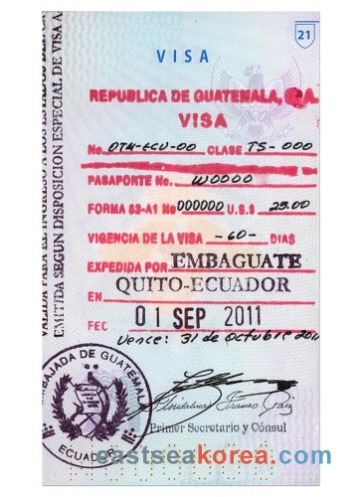 21
VISA
REPUBLICA DE GUATEMALA, C.A.
VISA
No. OTM-ECU-00 CLASE TS-000
PASAPORTE No. W0000
FORMA 63-A1 No 000000 U.S.$ 25.00
VIGENCIA DE LA VISA -60- DIAS
EXPEDIDA POR EMBAGUATE
EN QUITO-ECUADOR
FEC 01 SEP 2011
Vence: 31 de Octubre 2011
Primer Secretario y Cónsul
VALIDA PARA EL INGRESO A LOS ESTADOS
EMITIDA SEGUN DISPOSICION ESPECIAL DE VISA
EMBAJADA DE GUATEMALA
ECUADOR
eastseakorea.com